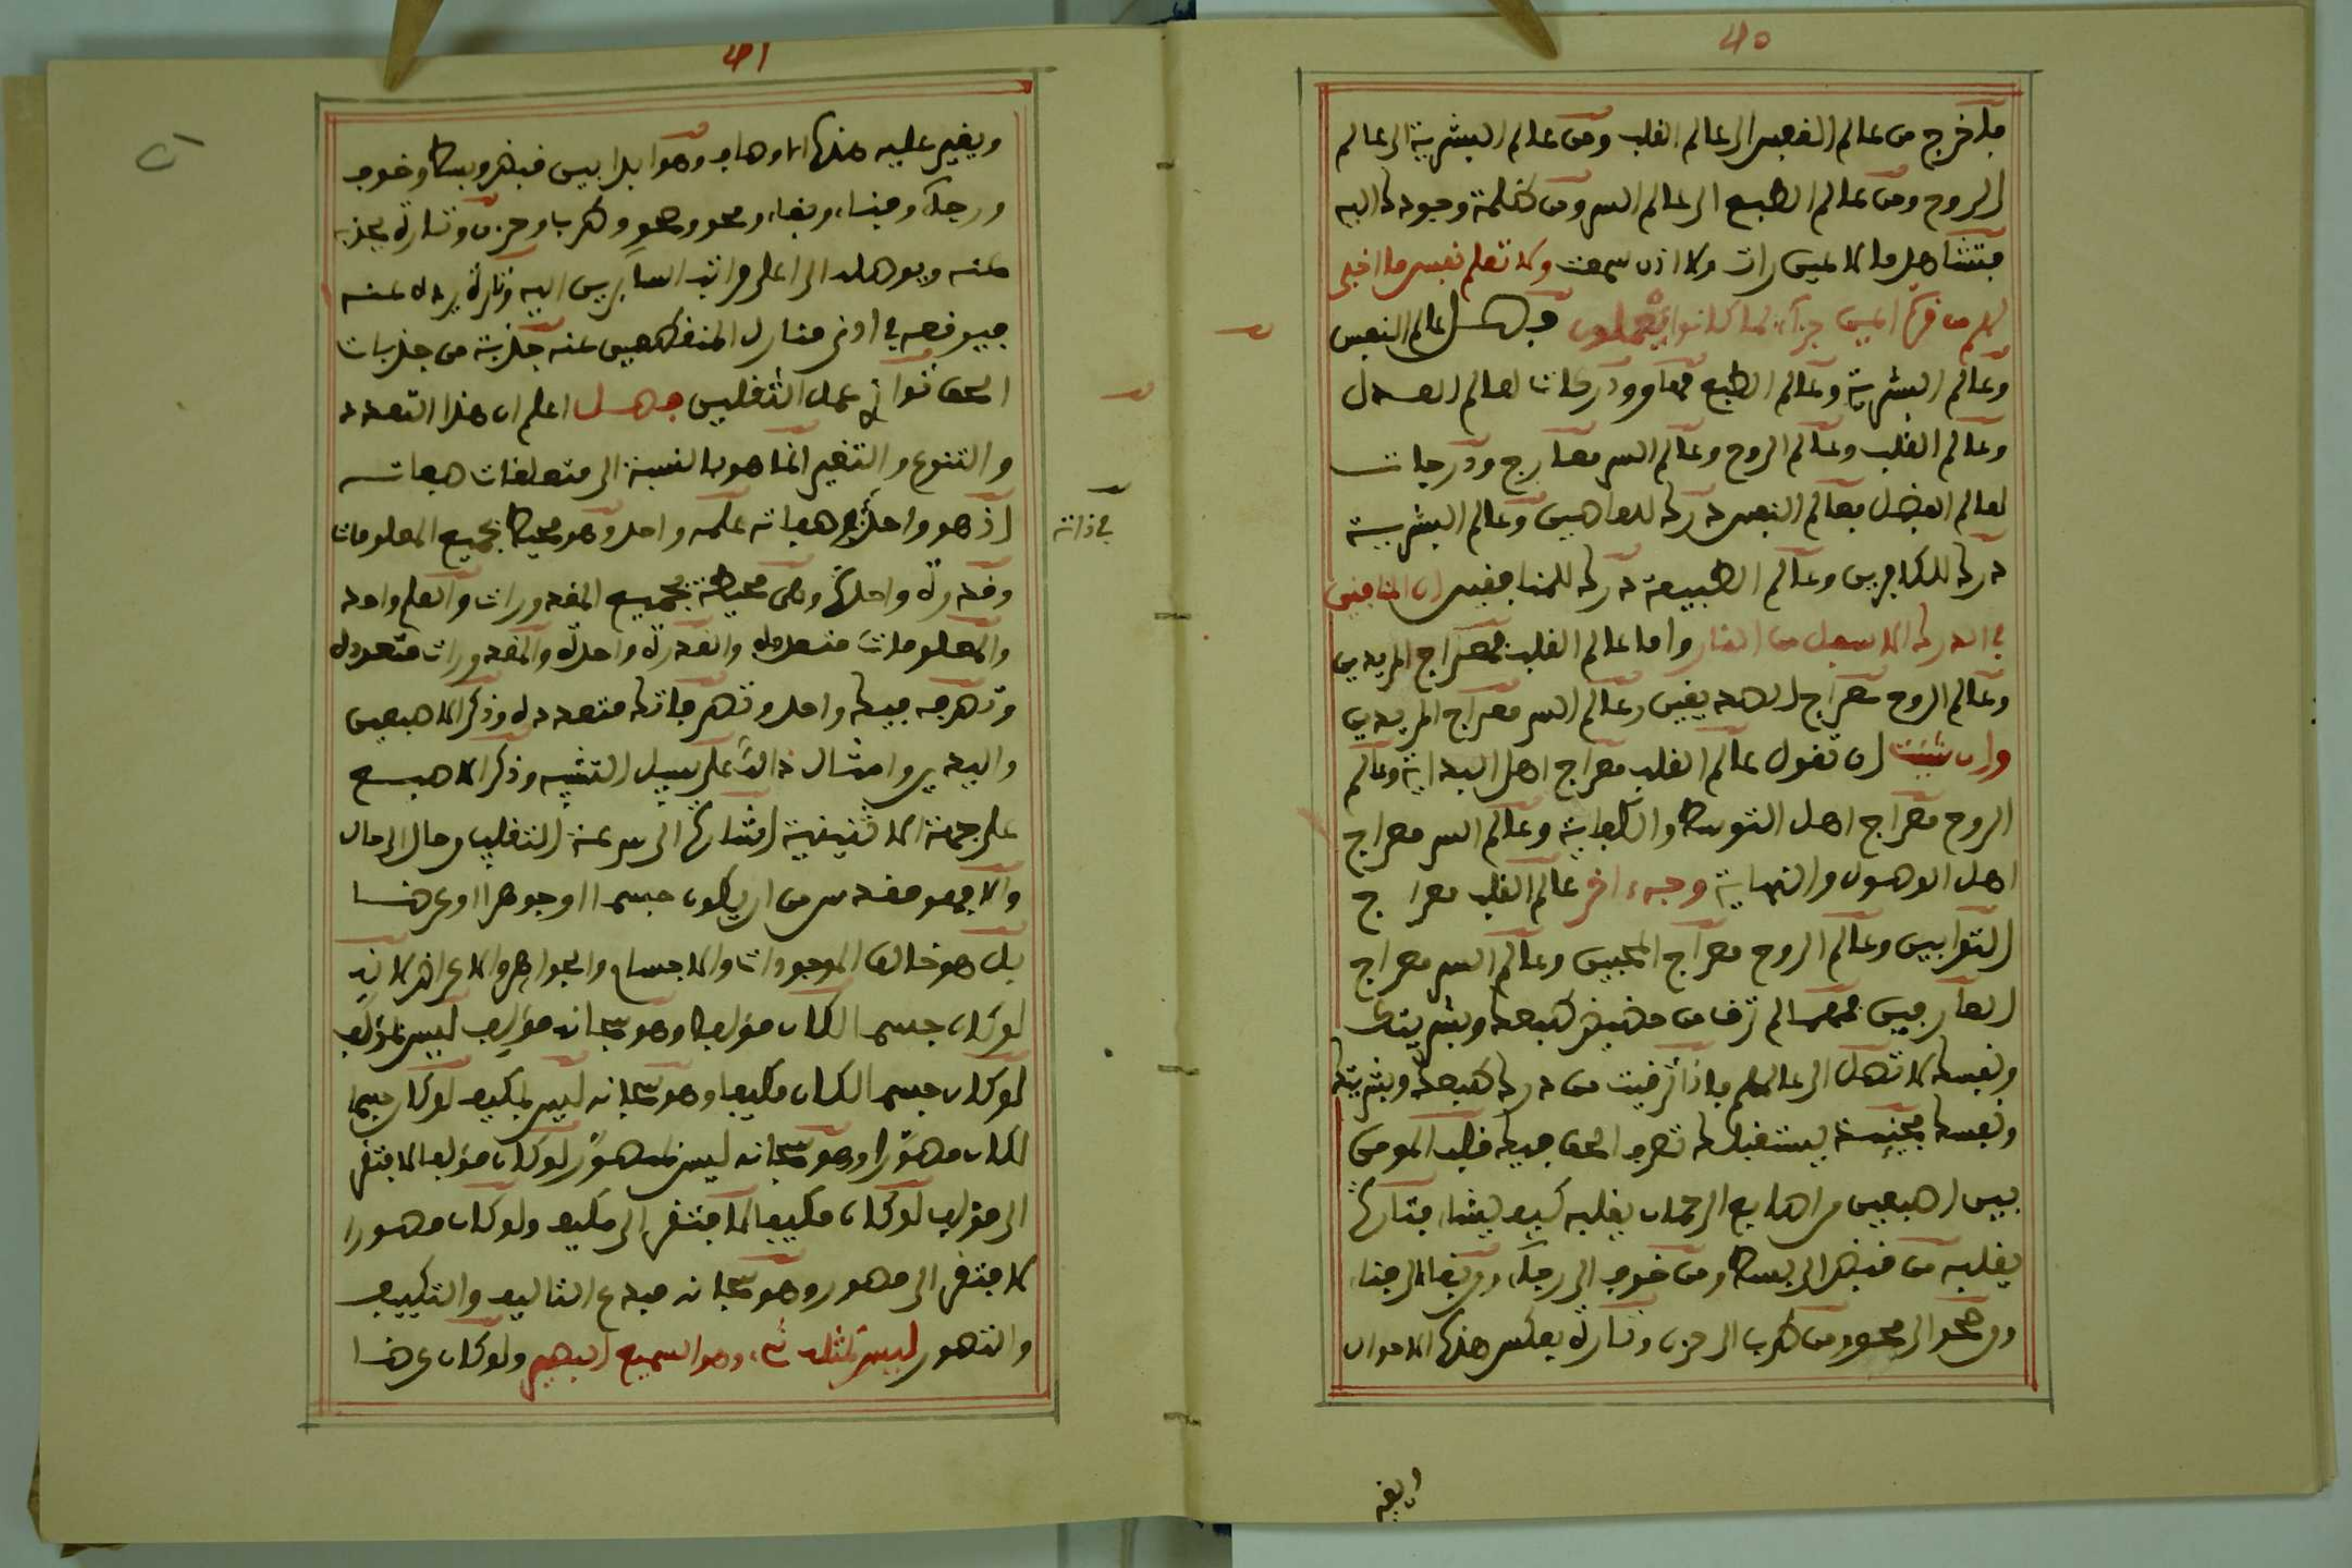 40
فاخرج من عالم النفس الى عالم القلب ومن عالم البشرية الى عالم
الروح ومن عالم الطبع الى عالم السر ومن ظلمة وجودك اليه
فتشاهد ما لا عين رات ولا اذن سمعت ولا تعلم نفس ما اخفى
لهم من قرة اعين جزآء بما كانوا يعملون فصل عالم النفس
وعالم البشرية وعالم الطبع مهاو ودركات لعالم العدل
وعالم القلب وعالم الروح وعالم السر معارج ودرجات
لعالم الفضل فعالم النفس درك للعاصين وعالم البشرية
درك للكافرين وعالم الطبيعة درك للمنافقين ان المنافقين
في الدرك الاسفل من النار واما عالم القلب فمعراج المريدين
وعالم الروح معراج الصديقين وعالم السر معراج المريدين
وان شئت ان تقول عالم القلب معراج اهل البداية وعالم
الروح معراج اهل التوسط والكفاية وعالم السر معراج
اهل الوصول والنهاية وجه اخر عالم القلب معراج
التوابين وعالم الروح معراج المحبين وعالم السر معراج
العارفين فمهما لم ترق من حضيض طبعك وبشريتك
ونفسك لا تصل الى عالم فاذا ترقيت من درك طبعك وبشريتك
ونفسك فحينئذ يستقبلك تصرف الحق فيك قلب المومن
بين اصبعين من اصابع الرحمان يقلبه كيف يشاء فتارة
يقلبه من قبض الى بسط ومن خوف الى رجاء ومن بقاء الى فناء
ومن صحو الى محو ومن طرب الى حزن وتارة بعكس هذه الاحوال
41
ويغير عليه هذه الاوصاف وهو ابدا بين قبض وبسط وخوف
ورجاء وفناء وبقاء ومحو وصحو وطرب وحزن وتارة يجذبه
عنه ويوصله الى اعلى مراتب السايرين اليه وتارة يرده عنه
فيوقعه في ادنى منازل المنقطعين عنه جذبة من جذبات
الحق توازى عمل الثقلين فصل اعلم ان هذا التعدد
والتنوع والتغير انما هو بالنسبة الى متعلقات صفاته
اذ هو واحد في صفاته علمه واحد وهو محيط بجميع المعلومات
في ذاته
وقدرته واحدة وهي محيطة بجميع المقدورات والعلم واحد
والمعلومات متعددة والقدرة واحدة والمقدورات متعددة
وتصرفه فيك واحد وتصرفاتك متعددة وذكر الاصبعين
واليدين وامثال ذالك على سبيل التشبيه وذكر الاصبع
على جهة الاثنينية اشارة الى سرعة التقليب من حال الى حال
والا فهو مقدس من ان يكون جسما او جوهرا او عرضا
بل هو خالق الموجودات والاجسام والجواهر والاعراض لانه
لو كان جسما لكان مؤلفا وهو سبحانه مؤلف ليس بمؤلف
لو كان جسما لكان مكيفا وهو سبحانه ليس بمكيف لو كان جسما
لكان مصورا وهو سبحانه ليس بمصور لو كان مؤلفا لافتقر
الى مؤلف لو كان مكيفا لافتقر الى مكيف ولو كان مصورا
لافتقر الى مصور وهو سبحانه مبدع التاليف والتكييف
والتصور ليس كمثله شيء وهو السميع البصير ولو كان عرضا